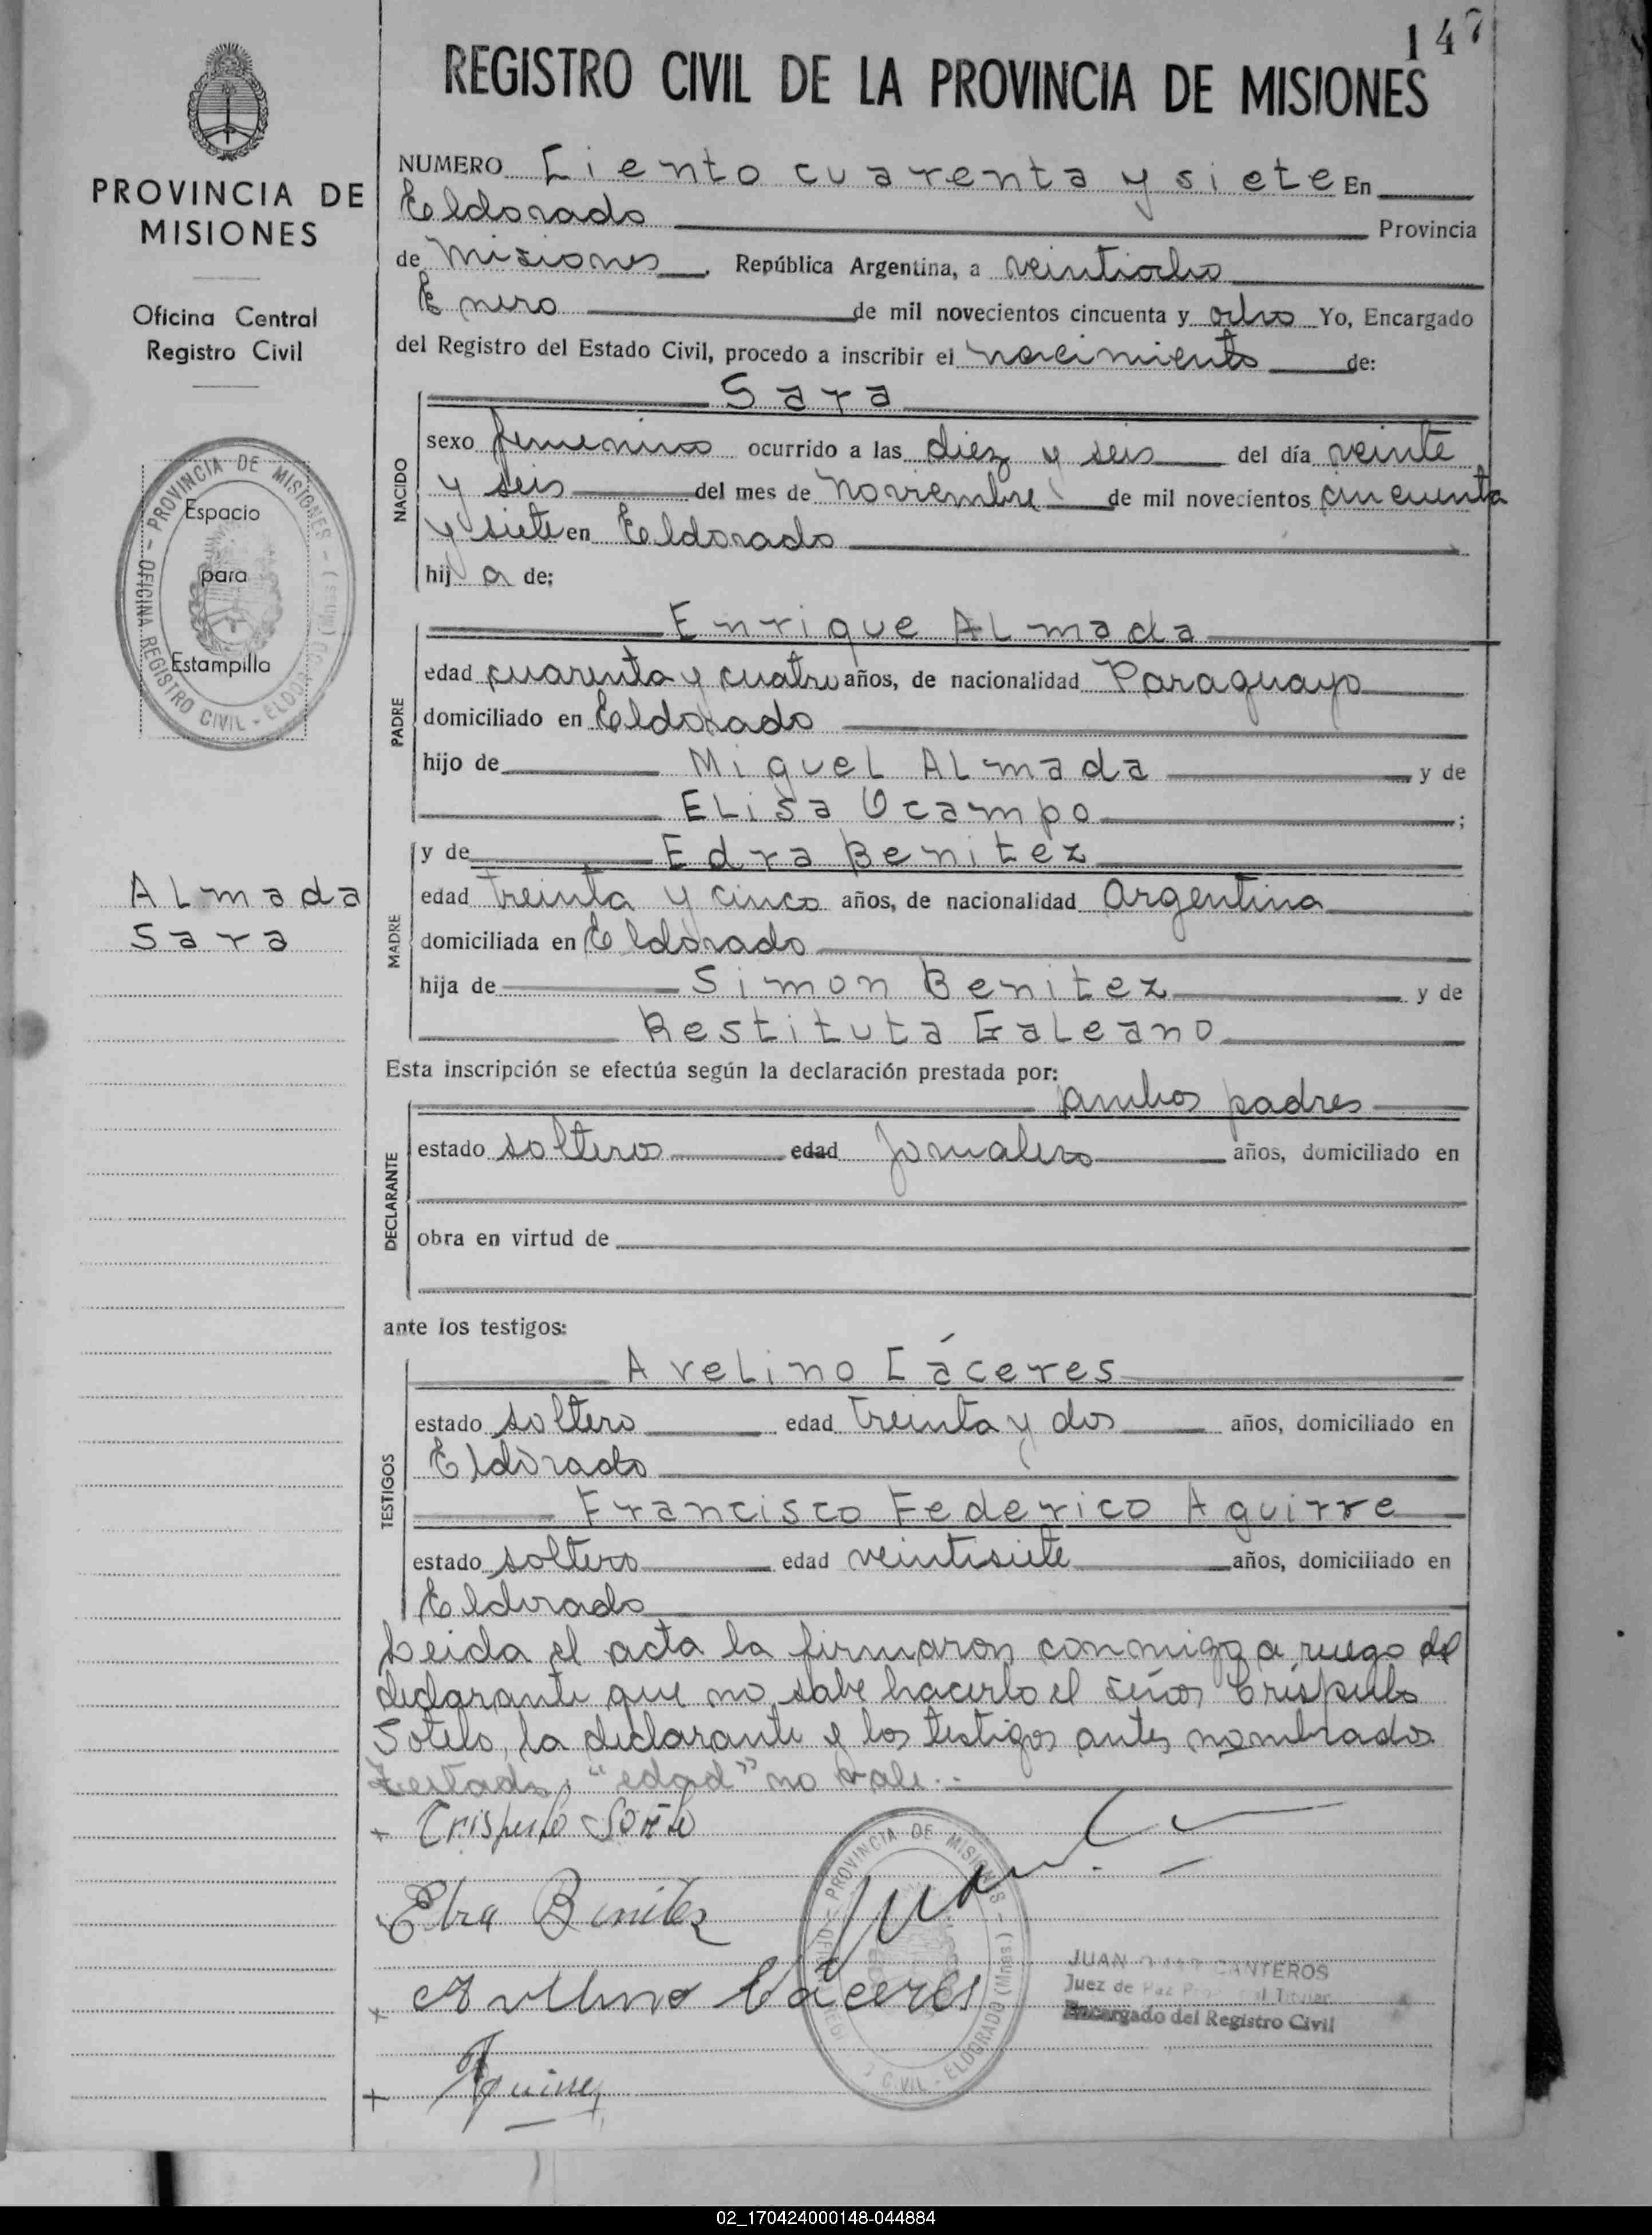 147
REGISTRO CIVIL DE LA PROVINCIA DE MISIONES
PROVINCIA DE
MISIONES
Oficina Central
Registro Civil
PROVINCIA DE MISIONES
OFICINA REGISTRO CIVIL - ELDORADO (Mnes.)
Espacio
para
Estampilla
ALmada
Sara
NUMERO Ciento cuarenta y siete En
Eldorado Provincia
de Misiones, República Argentina, a veintiocho
Enero de mil novecientos cincuenta y ocho Yo, Encargado
del Registro del Estado Civil, procedo a inscribir el nacimiento de:
NACIDO
Sara
sexo femenino ocurrido a las diez y seis del día veinte
y seis del mes de noviembre de mil novecientos cincuenta
y siete en Eldorado
hij a de:
PADRE
Enrique ALmada
edad cuarenta y cuatro años, de nacionalidad Paraguayo
domiciliado en Eldorado
hijo de MigueL ALmada y de
ELisa Ocampo ;
MADRE
y de Edra Benitez
edad treinta y cinco años, de nacionalidad Argentina
domiciliada en Eldorado
hija de Simon Benitez y de
Restituta GaLeano
Esta inscripción se efectúa según la declaración prestada por:
DECLARANTE
ambos padres
estado solteros edad jornalero años, domiciliado en
obra en virtud de
ante los testigos:
TESTIGOS
AveLino Cáceres
estado soltero edad treinta y dos años, domiciliado en
Eldorado
Francisco Federico Aguirre
estado soltero edad veintisiete años, domiciliado en
Eldorado
Leida el acta la firmaron conmigo a ruego del
declarante que no sabe hacerlo el señor Críspulo
Sotelo, la declarante y los testigos antes nombrados
Testado: "edad" no vale.-
Crispulo Sotelo
Elra Benitez
Avelino Cáceres
PROVINCIA DE MISIONES
CIVIL - ELDORADO (Mnes.)
JUAN CANTEROS
Juez de Paz Titular
Encargado del Registro Civil
Aguirre
02_170424000148-044884